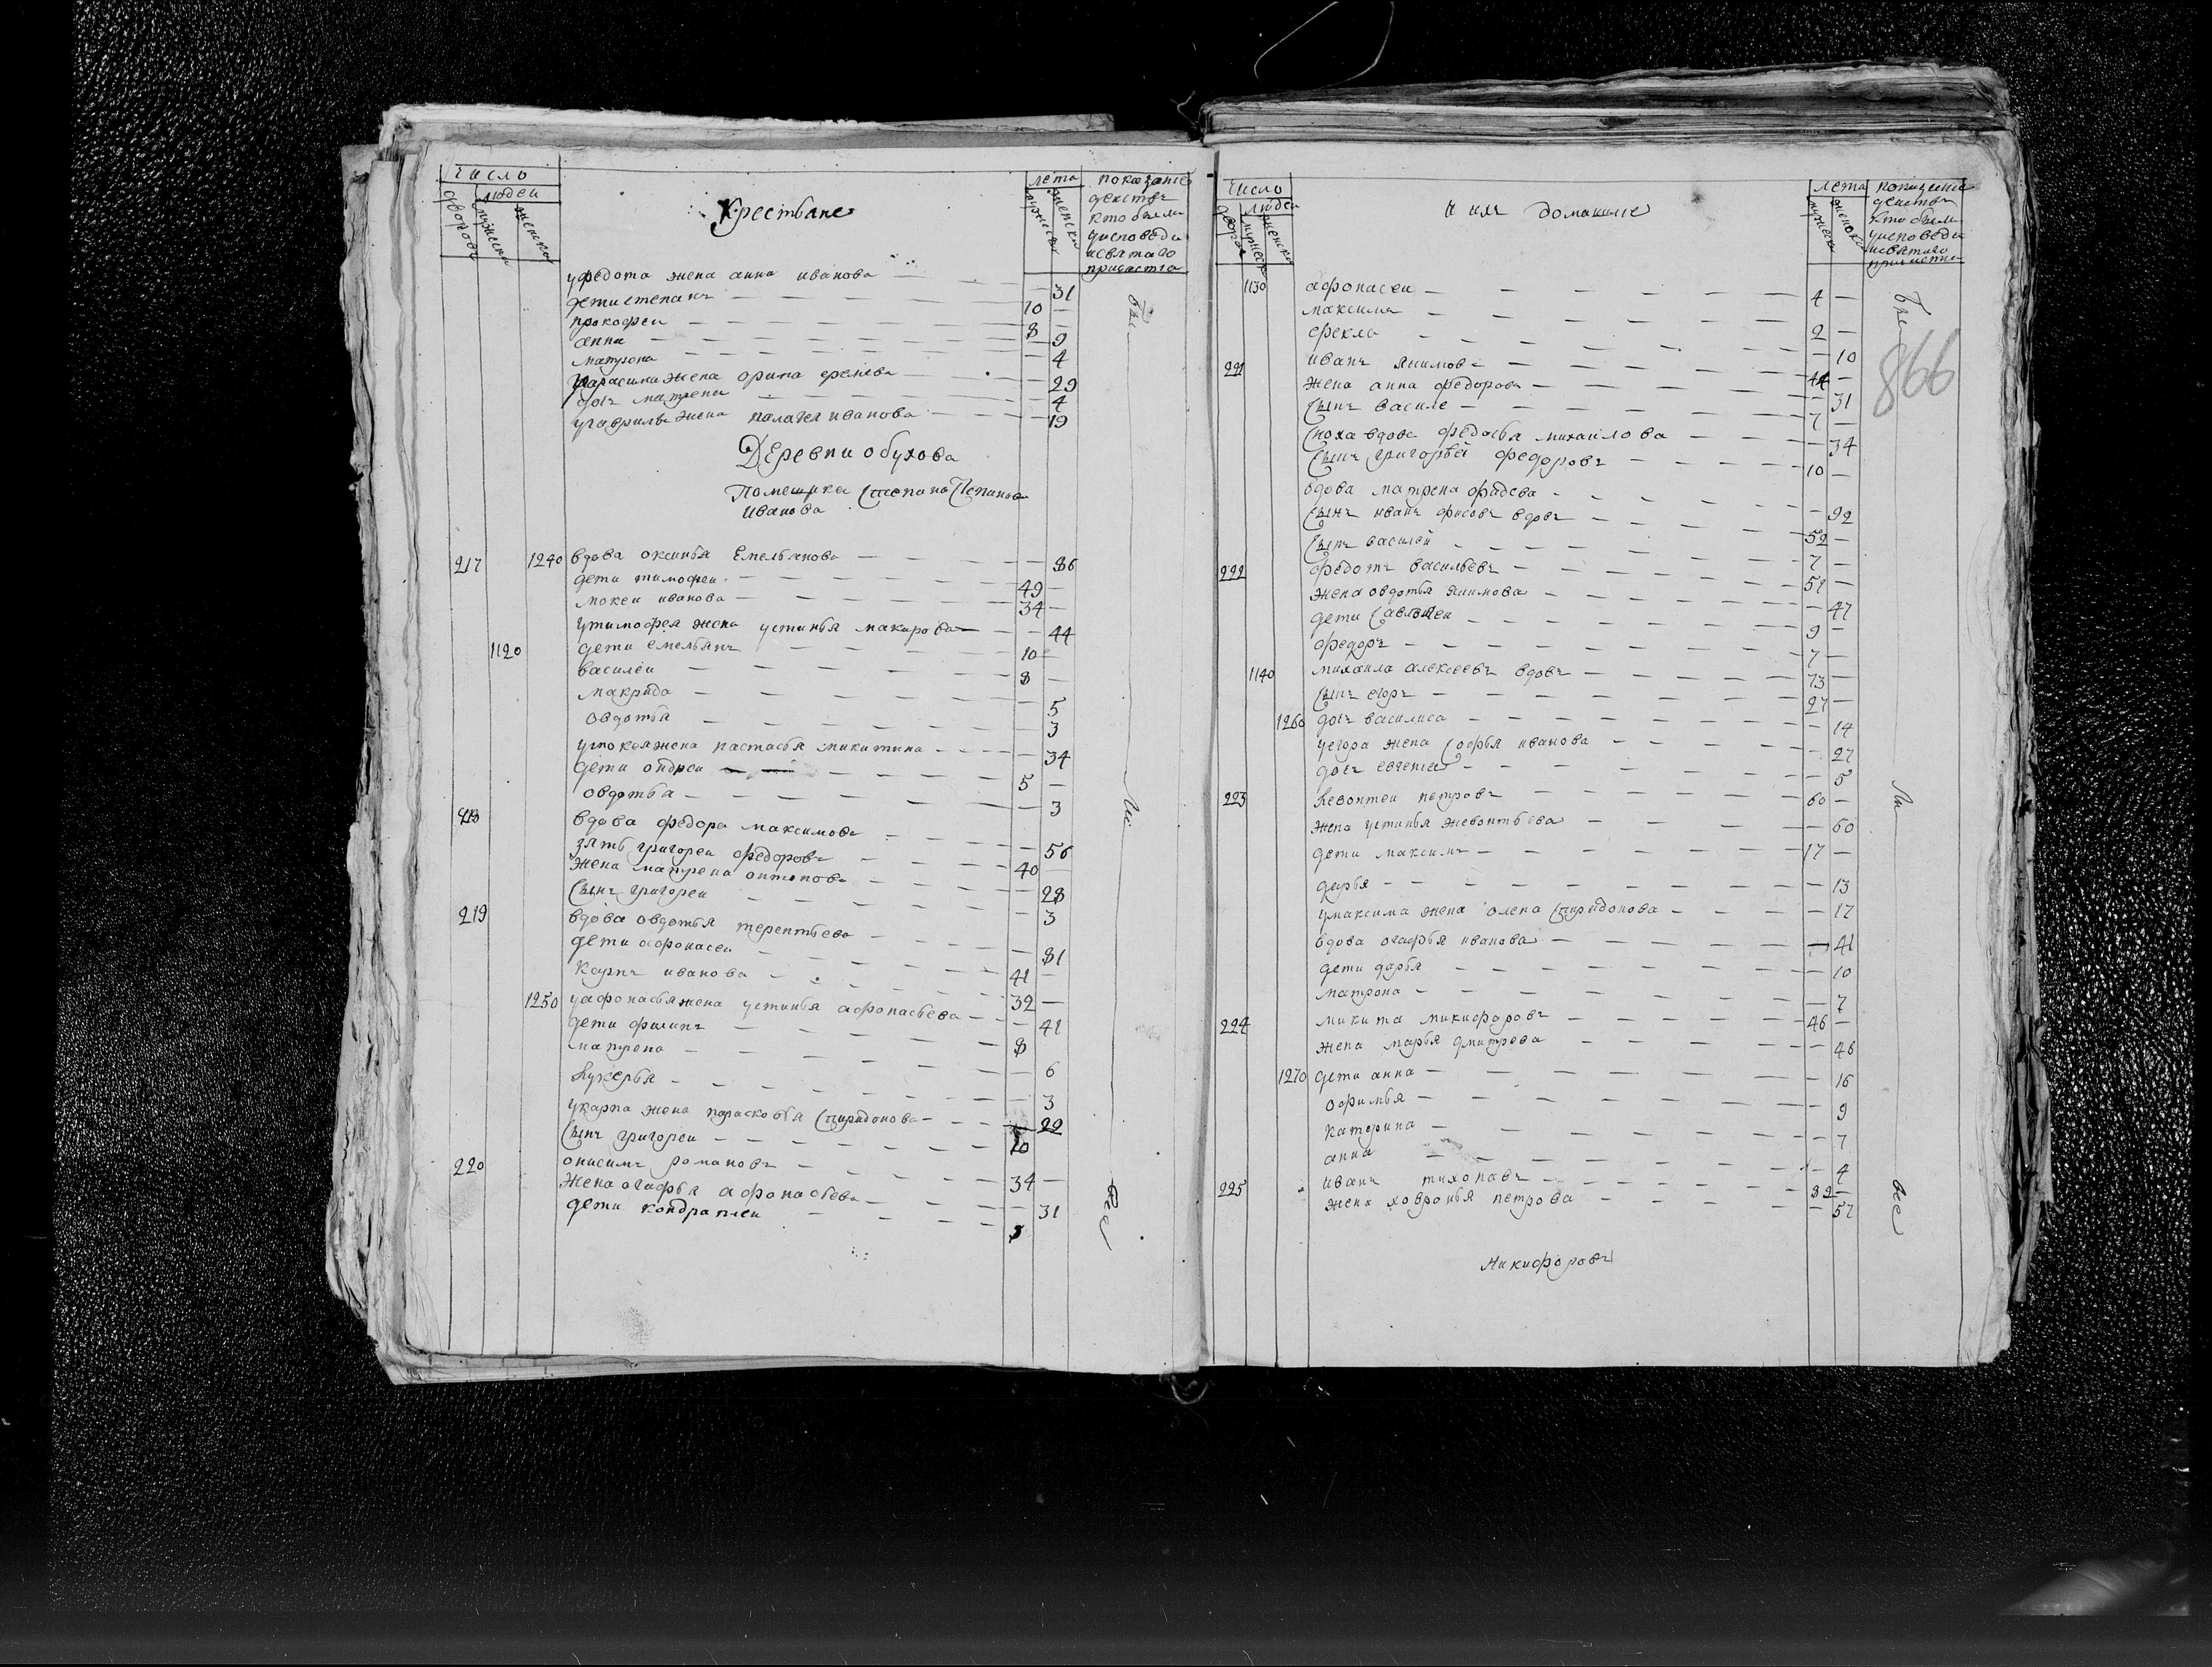 число
людеи
дворовъ
мужеска
женска
Крестьяне
лета
мужеска
женска
показание
деиства
кто были
уисповеди
исвятаго
причастия
уфедота жена анна иванова — 31
дети степанъ — 10
прокофеи — 8
анна — 9
матрона — 4
угарасима жена орина еремева — 29
дочь матрена — 4
угаврилы жена палагея иванова — 19
Деревни обухова
Помещика Степана Степанова
Иванова
217 1240 вдова оксинья Емельянова — 86
дети тимофеи — 49
мокеи иванова — 34
утимофея жена устинья макарова — 44
1120 дети емельянъ — 10
василеи — 8
макрида — 5
овдотья — 3
умокея жена настасья микитина — 34
дети ондреи — 5
овдотья — 3
218 вдова федора максимова — 56
зять григореи федоровъ — 40
жена матрена онтонова — 28
сынъ григореи — 3
219 вдова овдотья терентьева — 81
дети офонасеи — 41
карпъ иванова — 32
1250 уафонасья жена устинья афонасьева — 41
дети филипъ — 8
матрена — 6
лукерья — 3
укарпа жена парасковья спиридонова — 22
сынъ григореи — 10
220 онисимъ романовъ — 34
жена огафья афонасьева — 31
дети кондратеи — 8
бы
ли
все
число
людеи
дворовъ
мужеск
женска
и ихъ домашние
лета
мужеска
женска
показание
деиства
кто были
уисповеди
исвятаго
причастия
866
1130 афонасеи — 4
максимъ — 2
фекла — 10
221 иванъ якимовъ — 44
жена анна федорова — 31
сынъ василе — 7
сноха вдова федосья михаилова — 34
сынъ григорьи федоровъ — 10
вдова матрена фадева — 92
сынъ иванъ фисовъ вдовъ — 52
сынъ василеи — 7
222 федотъ васильевъ — 51
жена овдотья якимова — 47
дети савлатеи — 9
федоръ — 7
1140 михаила алексеевъ вдовъ — 73
сынъ егоръ — 27
1260 дочь василиса — 14
уегора жена софья иванова — 27
дочь евгенья — 5
223 левонтеи петровъ — 60
жена устинья левонтьева — 60
дети максимъ — 17
дарья — 13
умаксима жена олена спиридонова — 17
вдова огафья иванова — 41
дети дарья — 10
матрона — 7
224 микита микифоровъ — 46
жена марья дмитрева — 46
1270 дети анна — 16
офимья — 9
катерина — 7
анна — 4
225 иванъ тихоновъ — 82
жена ховронья петрова — 57
бы
ли
все
Никифоровъ